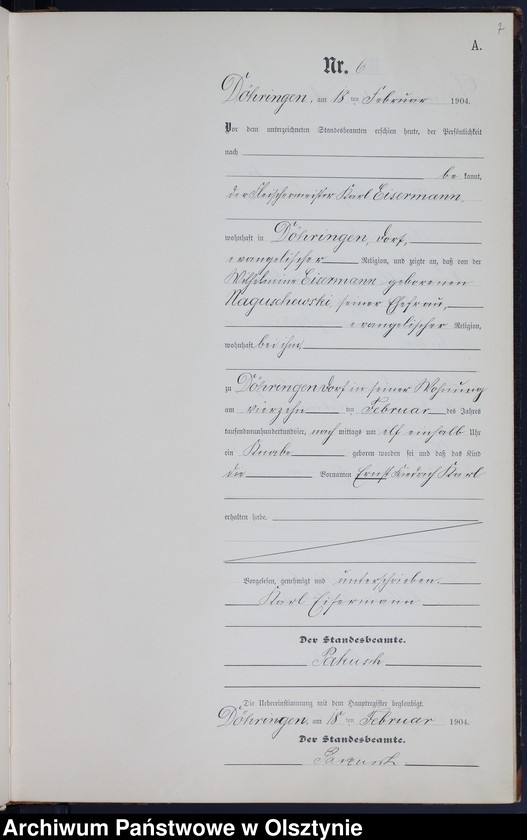 7
A.
Nr. 6
Döhringen, am 18 ten Februar 1904.
Vor dem unterzeichneten Standesbeamten erschien heute, der Persönlichkeit
nach
be kannt,
der Fleischermeister Karl Eisermann,
wohnhaft in Döhringen, Dorf,
evangelischer Religion, und zeigte an, daß von der
Wilhelmine Eisermann geborenen
Naguschewski, seiner Ehefrau,
evangelischer Religion,
wohnhaft bei ihm
zu Döhringen Dorf in seiner Wohnung
am vierzehn ten Februar des Jahres
tausendneunhundertundvier, nach mittags um elf einhalb Uhr
ein Knabe geboren worden sei und daß das Kind
die Vornamen Ernst Friedrich Karl
erhalten habe.
Vorgelesen, genehmigt und unterschrieben.
Karl Eisermann
Der Standesbeamte.
Die Uebereinstimmung mit dem Hauptregister beglaubigt.
Döhringen, am 18 ten Februar 1904.
Der Standesbeamte.
Archiwum Państwowe w Olsztynie